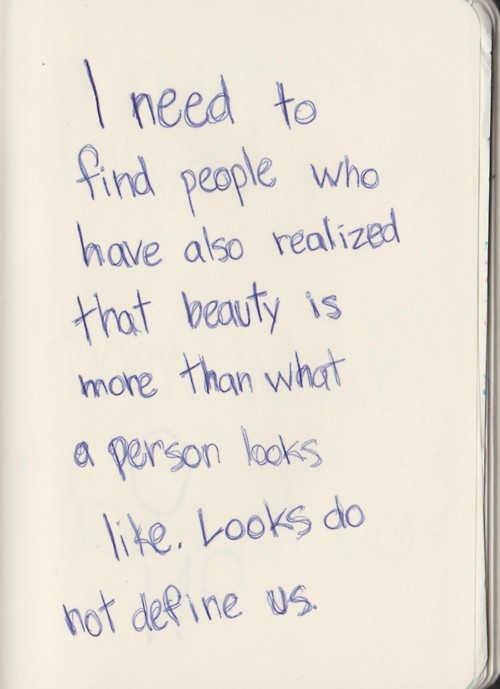 I need to
find people who
have also realized
that beauty is
more than what
a person looks
like. Looks do
not define us.